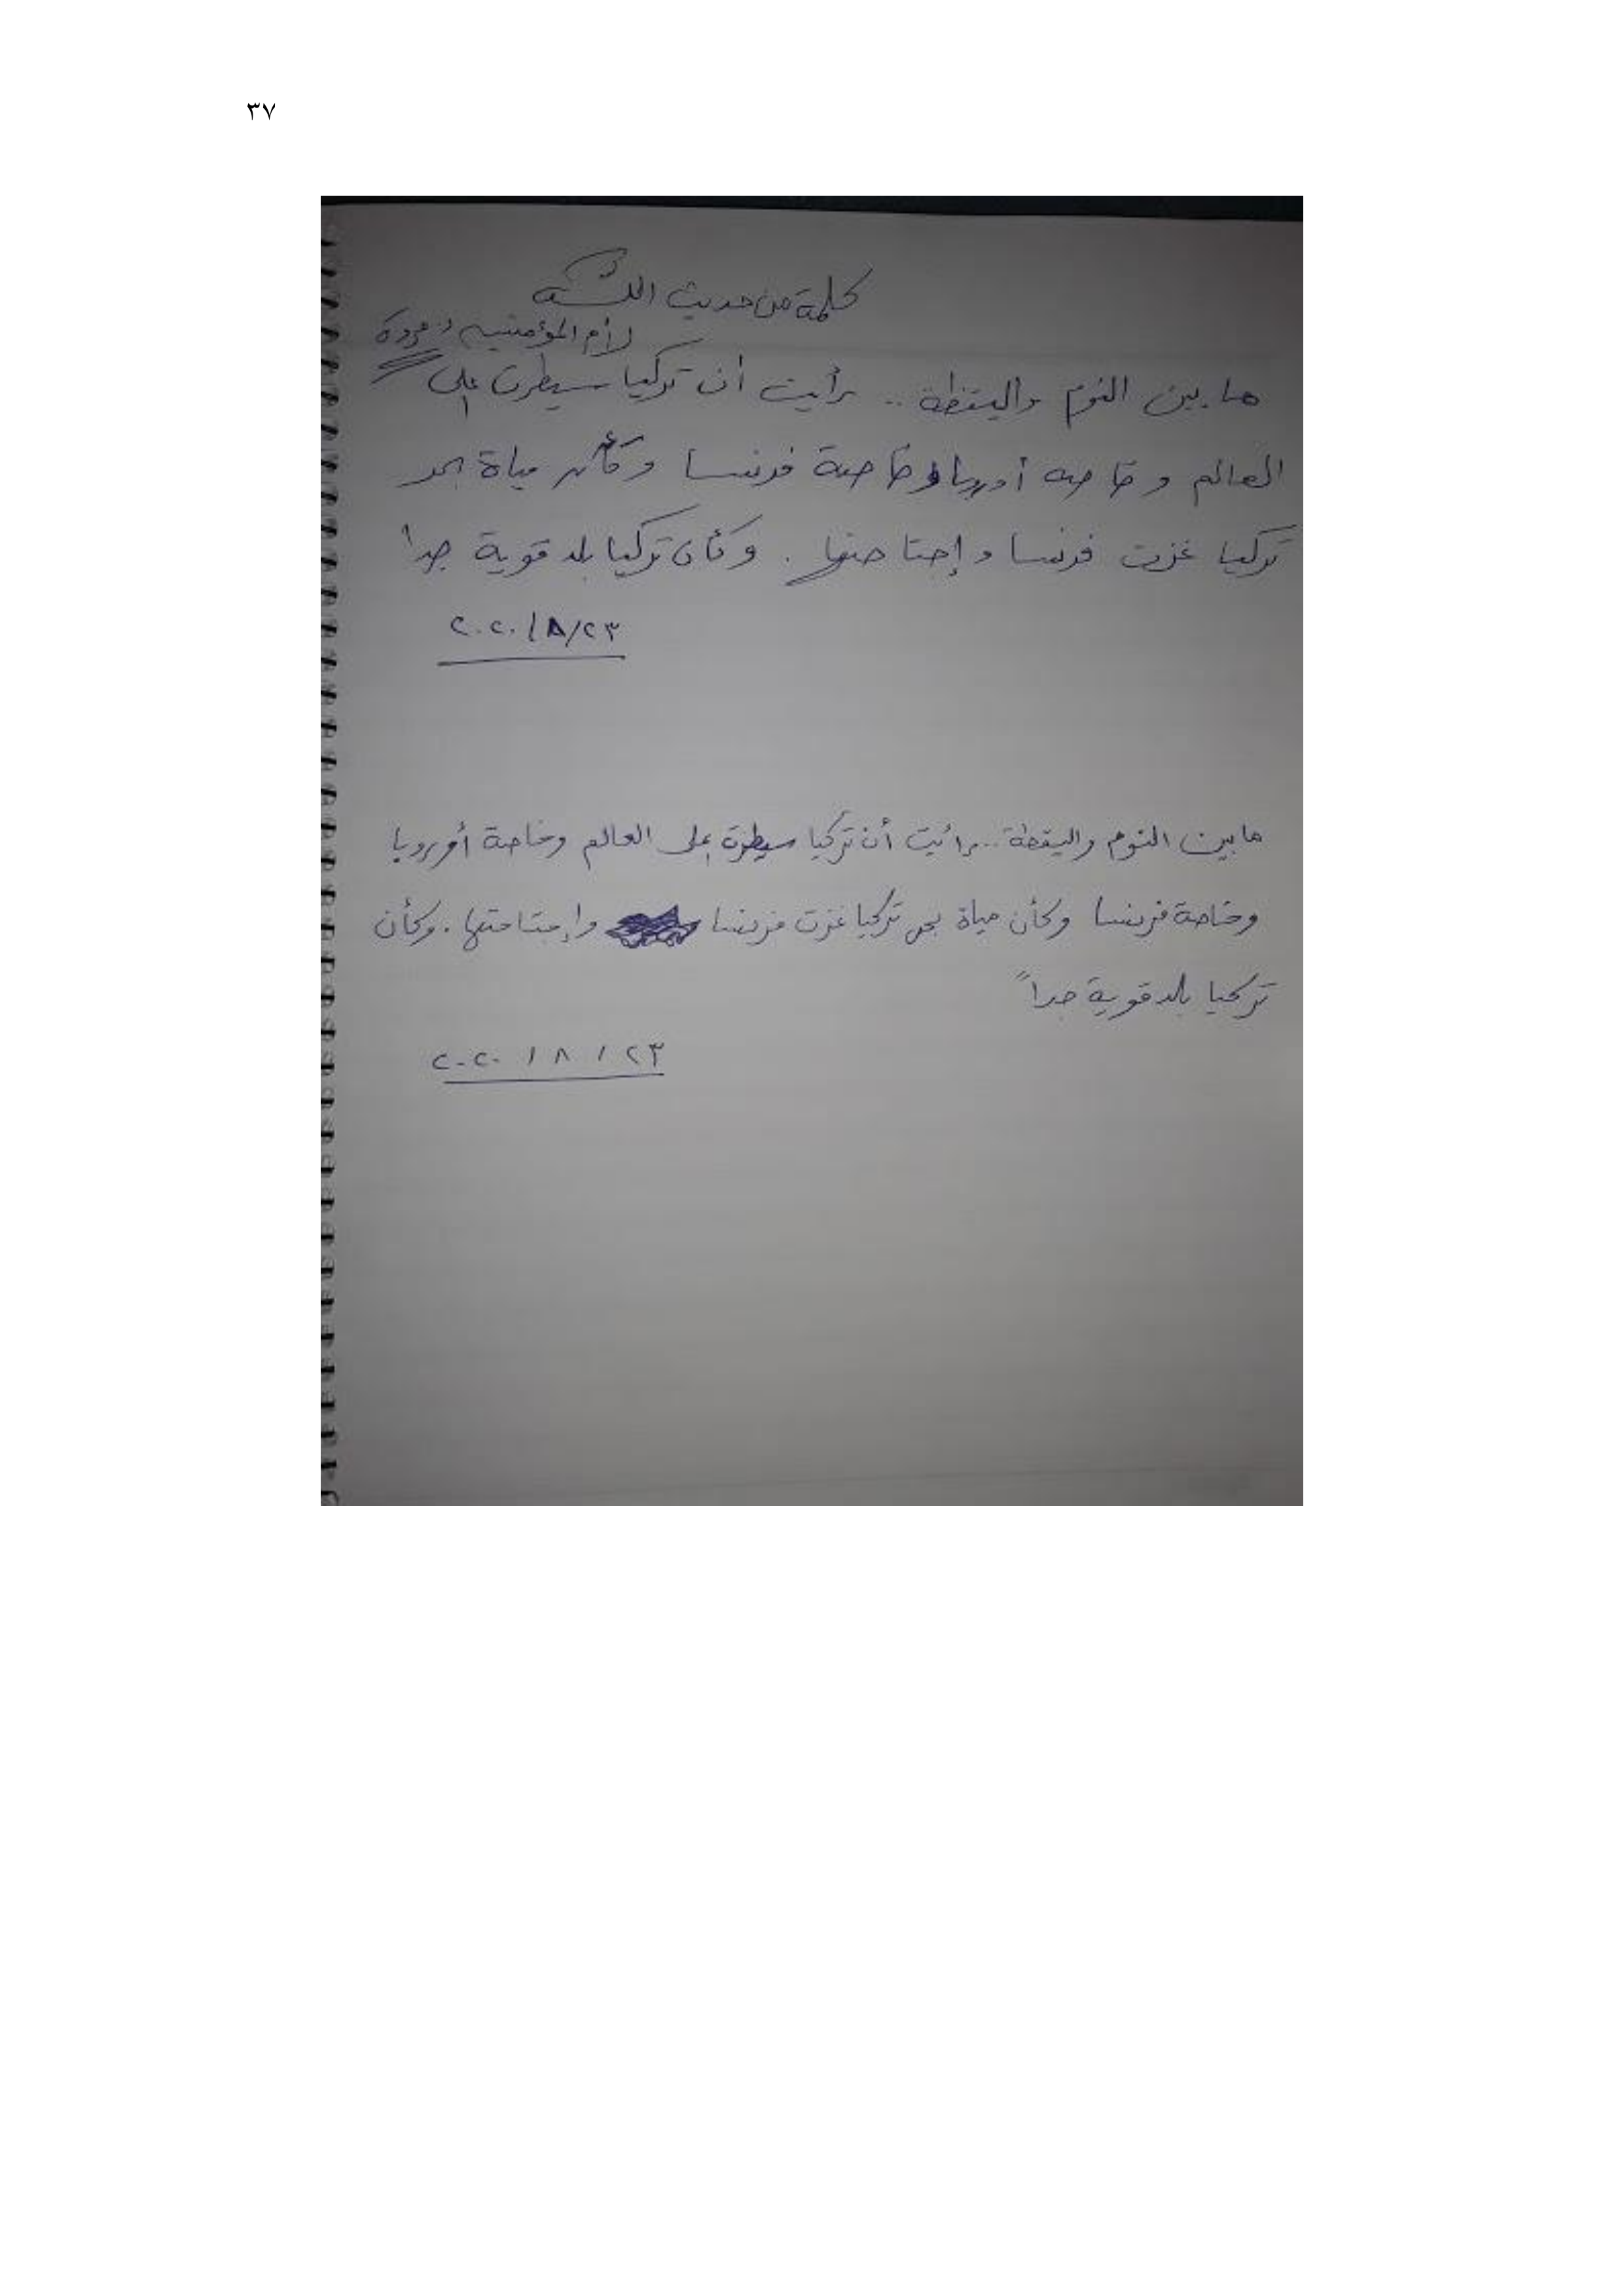 ٣٧
كلمة من حديث
لأم المؤمنين
ما بين النوم واليقظة .. رأيت أن تركيا سيطرت على
العالم وخاصه أوروبا وخاصة فرنسا وكأن مياة بحر
تركيا غزت فرنسا وإجتاحتها . وكأن تركيا بلد قوية جدا
٢٠٢٠/٨/٢٣
ما بين النوم واليقظة .. رائيت أن تركيا سيطرت على العالم وخاصة أوروبا
وخاصة فرنسا وكأن مياة بحر تركيا غزت فرنسا وإجتاحتها . وكأن
تركيا بلد قوية جداً
٢٠٢٠ / ٨ / ٢٣